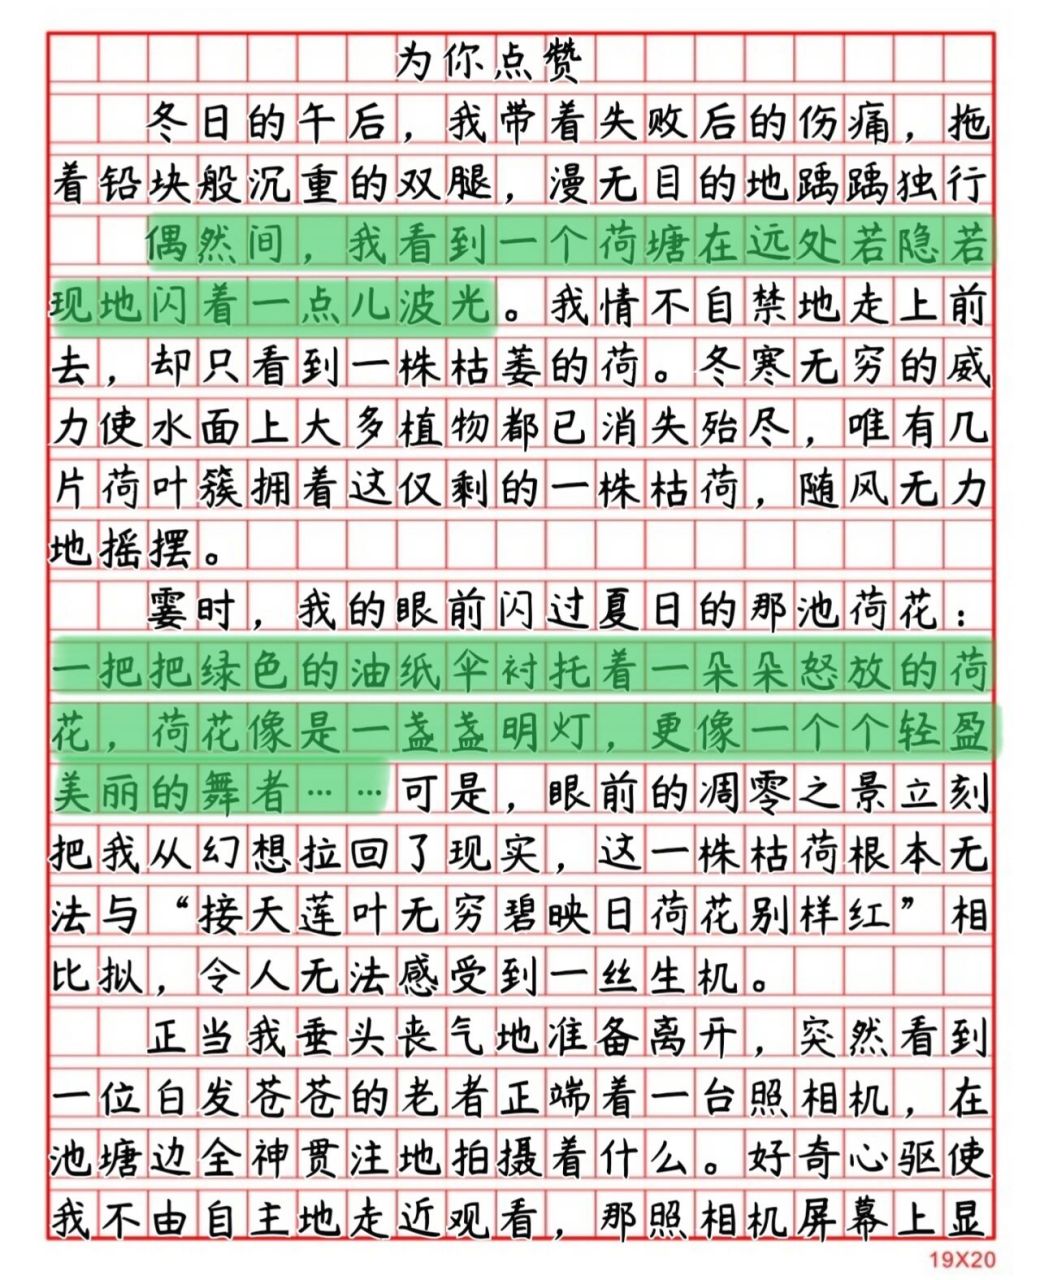 为你点赞
冬日的午后，我带着失败后的伤痛，拖
着铅块般沉重的双腿，漫无目的地踽踽独行
偶然间，我看到一个荷塘在远处若隐若
现地闪着一点儿波光。我情不自禁地走上前
去，却只看到一株枯萎的荷。冬寒无穷的威
力使水面上大多植物都已消失殆尽，唯有几
片荷叶簇拥着这仅剩的一株枯荷，随风无力
地摇摆。
霎时，我的眼前闪过夏日的那池荷花：
一把把绿色的油纸伞衬托着一朵朵怒放的荷
花，荷花像是一盏盏明灯，更像一个个轻盈
美丽的舞者……可是，眼前的凋零之景立刻
把我从幻想拉回了现实，这一株枯荷根本无
法与“接天莲叶无穷碧映日荷花别样红”相
比拟，令人无法感受到一丝生机。
正当我垂头丧气地准备离开，突然看到
一位白发苍苍的老者正端着一台照相机，在
池塘边全神贯注地拍摄着什么。好奇心驱使
我不由自主地走近观看，那照相机屏幕上显
19X20